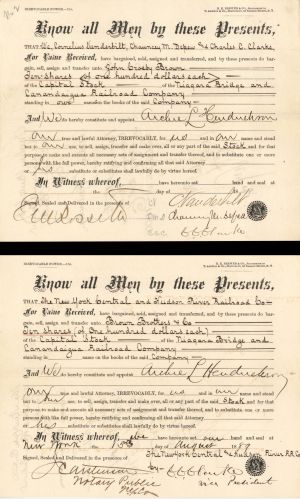 IRREVOCABLE POWER.
Know all Men by these Presents,
THAT We, Cornelius Vanderbilt, Chauncey M. Depew & Charles C. Clarke,
For Value Received, have bargained, sold, assigned and transferred, and by these presents do bar-
gain, sell, assign and transfer unto John Crosby Brown
Ten shares (of one hundred dollars each)
of the Capital Stock of the Niagara Bridge and
Canandaigua Railroad Company
standing in our names on the books of the said Company
And We do hereby constitute and appoint Archie L Hendrickson
our true and lawful Attorney, IRREVOCABLY, for us and in our name and stead
but to our use, to sell, assign, transfer and make over, all or any part of the said Stock and for that
purpose to make and execute all necessary acts of assignment and transfer thereof, and to substitute one or more
persons with like full power, hereby ratifying and confirming all that said Attorney or
substitutes shall lawfully do by virtue hereof.
In Witness whereof, have hereunto set hand and seal at
the day of
Signed, Sealed and Delivered in the presence of
C Vanderbilt
Chauncey M Depew
C C Clarke
IRREVOCABLE POWER.
Know all Men by these Presents,
THAT The New York Central and Hudson River Railroad Co
For Value Received, have bargained, sold, assigned and transferred, and by these presents do bar-
gain, sell, assign and transfer unto Brown Brothers & Co
Ten shares (of one hundred dollars each)
of the Capital Stock of the Niagara Bridge and
Canandaigua Railroad Company
standing in names on the books of the said Company
And We do hereby constitute and appoint Archie L Hendrickson
our true and lawful Attorney, IRREVOCABLY, for us and in our name and stead
but to use, to sell, assign, transfer and make over, all or any part of the said Stock and for that
purpose to make and execute all necessary acts of assignment and transfer thereof, and to substitute one or more
persons with like full power, hereby ratifying and confirming all that said Attorney or
his substitutes shall lawfully do by virtue hereof.
In Witness whereof, we have hereunto set hand and seal at
New York the day of August
Signed, Sealed and Delivered in the presence of The New York Central & Hudson River R.R. Co
by C C Clarke
Notary Public
Vice President